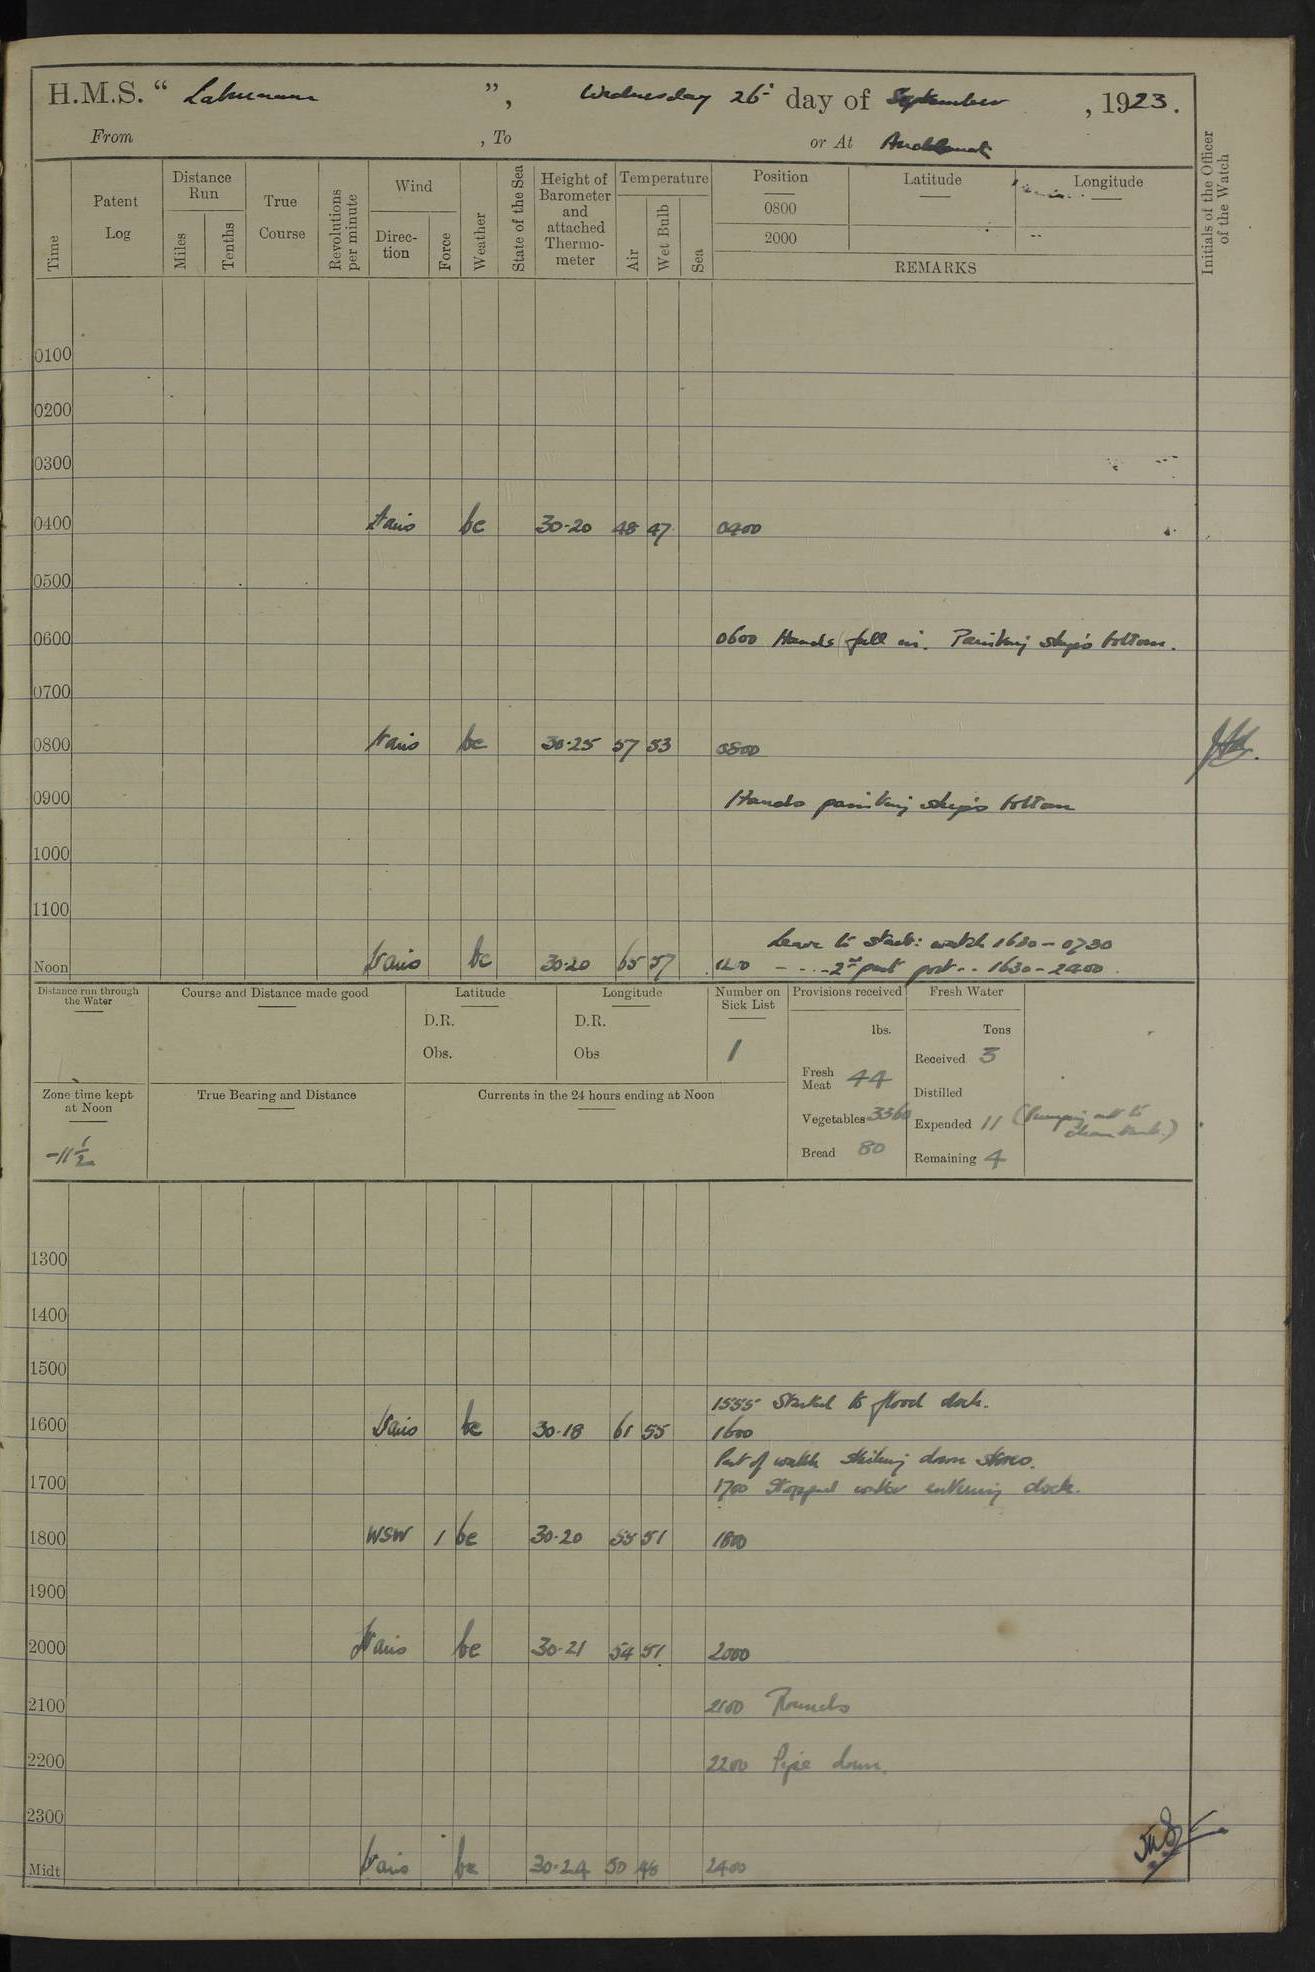 H.M.S. " Laburnum ", Wednesday 26th day of September, 1923.
From , To or At Auckland
Time
Patent Log
Distance Run
Miles
Tenths
True Course
Revolutions per minute
Wind
Direc-tion
Force
Weather
State of the Sea
Height of Barometer and attached Thermo-meter
Temperature
Air
Wet Bulb
Sea
Position
0800
2000
Latitude
Longitude
REMARKS
Initials of the Officer of the Watch
0100
0200
0300
0400 Vario bc 30.20 48 47 0400
0500
0600 0600 Hands fall in. Painting ship's bottom.
0700
0800 Vario bc 30.25 57 53 0800
0900 Hands painting ship's bottom
1000
1100
Leave to starb: watch 1630 - 0730
Noon Vario bc 30.20 65 57 1200 - - - - 2nd part port - - 1630 - 2400.
Distance run through the Water
Course and Distance made good
Latitude
D.R.
Obs.
Longitude
D.R.
Obs
Number on Sick List
1
Provisions received
lbs.
Fresh Meat 44
Vegetables 3360
Bread 80
Fresh Water
Tons
Received 3
Distilled
Expended 11 (Pumping out to clean tank.)
Remaining 4
Zone time kept at Noon
-11 1/2
True Bearing and Distance
Currents in the 24 hours ending at Noon
1300
1400
1500
1555 Started to flood dock.
1600 Vario bc 30.18 61 55 1600
Part of watch striking down stores.
1700 1700 Stopped water entering dock.
1800 WSW 1 bc 30.20 55 51 1800
1900
2000 Vario bc 30.21 54 51 2000
2100 2100 Rounds
2200 2200 Pipe down.
2300
Midt Vario bc 30.24 50 48 2400